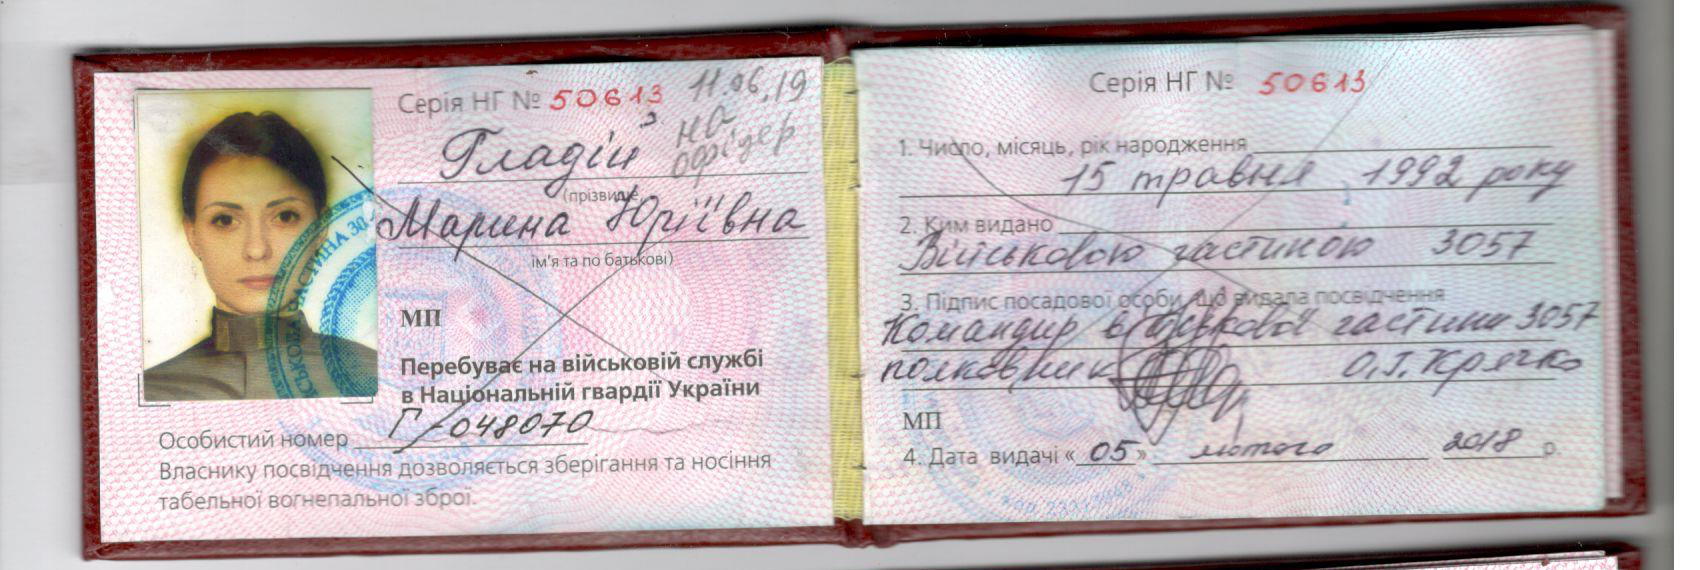 Серія НГ № 50613
11.06.19
на
офіцер
Гладій
(прізвище
Марина Юріївна
ім'я та по батькові)
МП
Перебуває на військовій службі
в Національній гвардії України
Особистий номер Г-048070
Власнику посвідчення дозволяється зберігання та носіння
табельної вогнепальної зброї.
Серія НГ № 50613
1. Число, місяць, рік народження
15 травня 1992 року
2. Ким видано
Військовою частиною 3057
3. Підпис посадової особи, що видала посвідчення
Командир військової частини 3057
полковник О.Г. Крячко
МП
4. Дата видачі «05» лютого 2018 р.